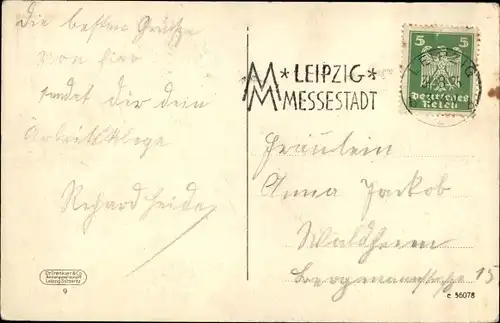 Die besten Grüße
von hier
sendet dir dein
Arbeitskollege
Richard Heide
* LEIPZIG *
MM MESSESTADT
LEIPZIG
5 5
Deutsches
Reich
Fräulein
Anna Jackob
Waldheim
15
Dr. Trenkler & Co.
Leipzig-Stötteritz
9
c 56078